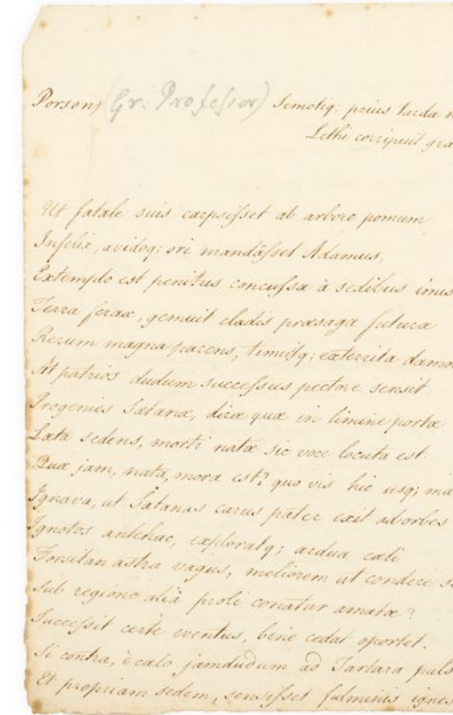 Porson, (Gr: Professor) Semotiq; prius tarda n
Lethi corripuit gra
Ut fatale suis carpsisset ab arbore pomum
Infelix, avidoq; ori mandâsset Adamus,
Extemplo est penitus concussa à sedibus imis
Terra ferax, gemuit cladis præsaga futuræ
Rerum magna parens, timuitq; exterrita damn
At patrios dudum successus pectore sensit
Progenies Satanæ, diræ quæ in limine portæ
Læta sedens, morti natæ sic voce locuta est
Quæ jam, nata, mora est? quo vis hic usq; ma
Ignava, ut Satanas carus pater exit ad orbes
Ignotos antehac, exploratq; ardua cæli
Forsitan astra vagus, meliorem ut condere se
Sub regione aliâ proli conatur amatæ?
Successit certe eventus, bene cedat oportet.
Si contra, è cælo jamdudum ad Tartara puls
Et propriam sedem, sensisset fulminis ignes